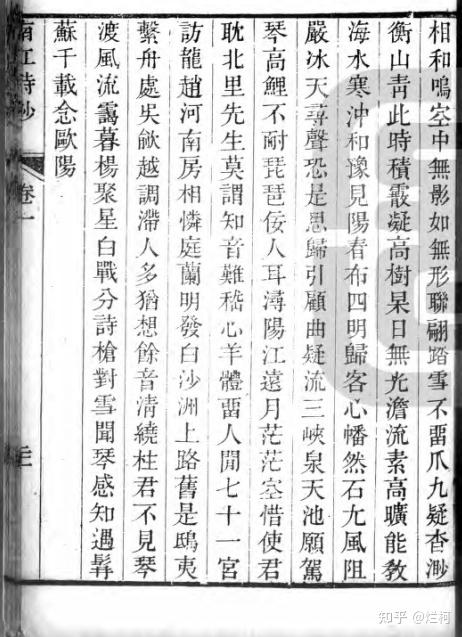 相和鳴空中無影如無形聯翩踏雪不畱爪九疑杳渺
衡山青此時積霰凝高樹杲日無光澹流素高曠能敎
海水寒沖和豫見陽春布四明歸客心幡然石尤風阻
嚴冰天尋聲恐是思歸引顧曲疑流三峽泉天池願駕
琴高鯉不耐琵琶佞人耳潯陽江遠月茫茫空惜使君
耽北里先生莫謂知音難嵇心羊體畱人閒七十一宮
訪龍趙河南房相憐庭蘭明發白沙洲上路舊是鴟夷
繫舟處吳歈越調滯人多猶想餘音淸繞柱君不見琴
渡風流靄暮楊聚星白戰分詩槍對雪聞琴感知遇髯
蘇千載念歐陽
南江詩鈔
卷一
知乎 @烂柯